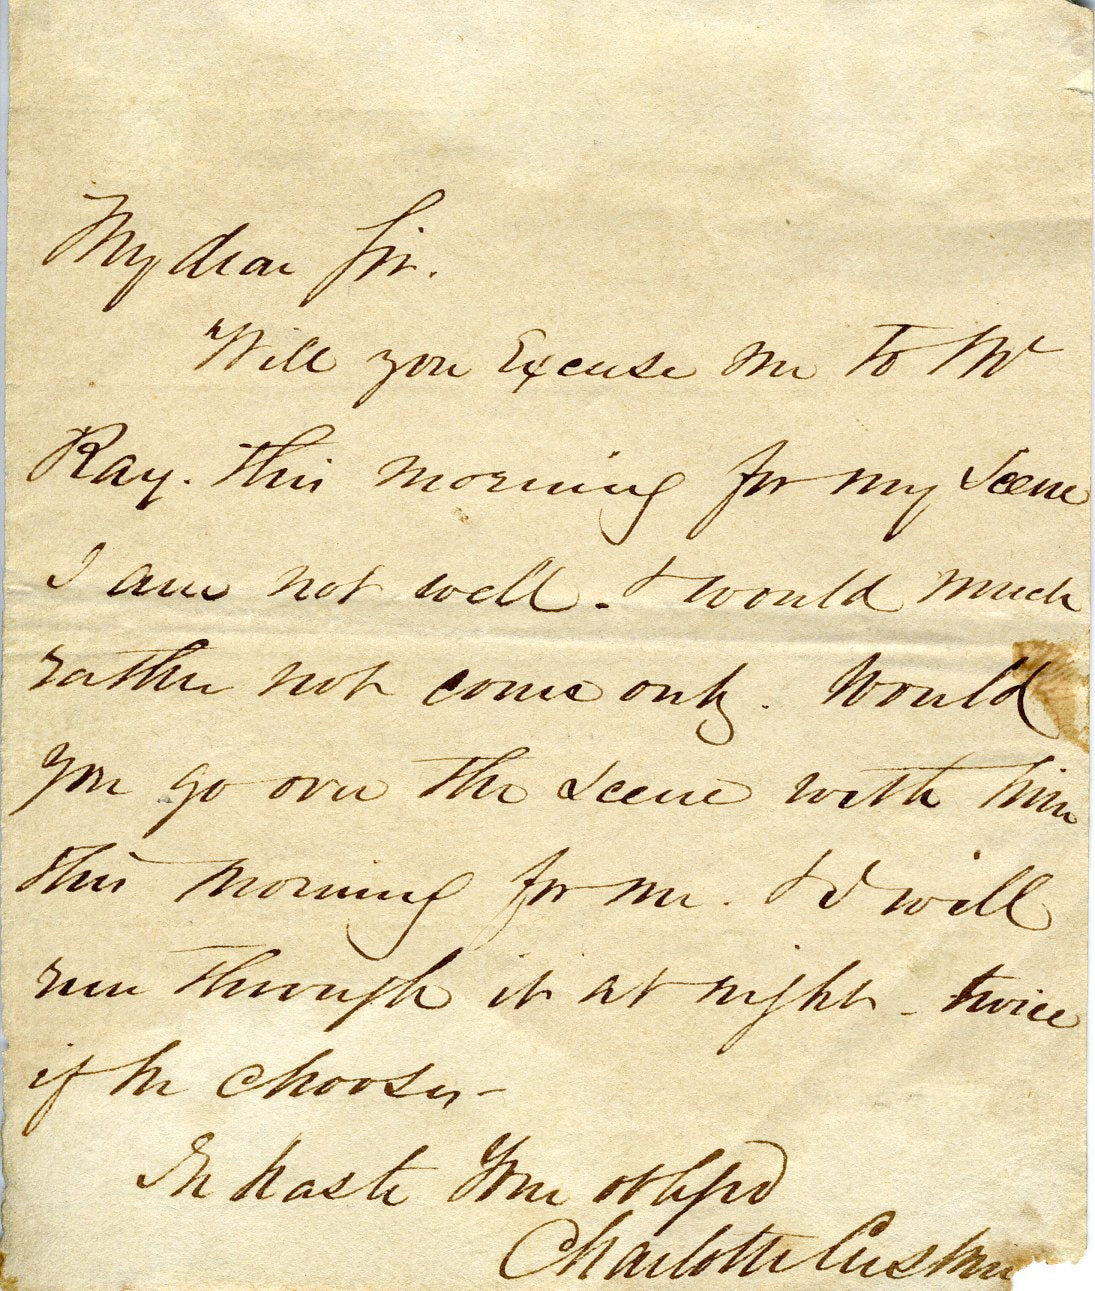 My dear Sir.
Will you Excuse me to Mr
Ray. this morning for my Scene
I am not well. & would much
rather not come only. Would
you go over the Scene with him
this morning for me. & I will
run through it at night - twice
if he chooses -
In haste Your oblgd
Charlotte Cushman